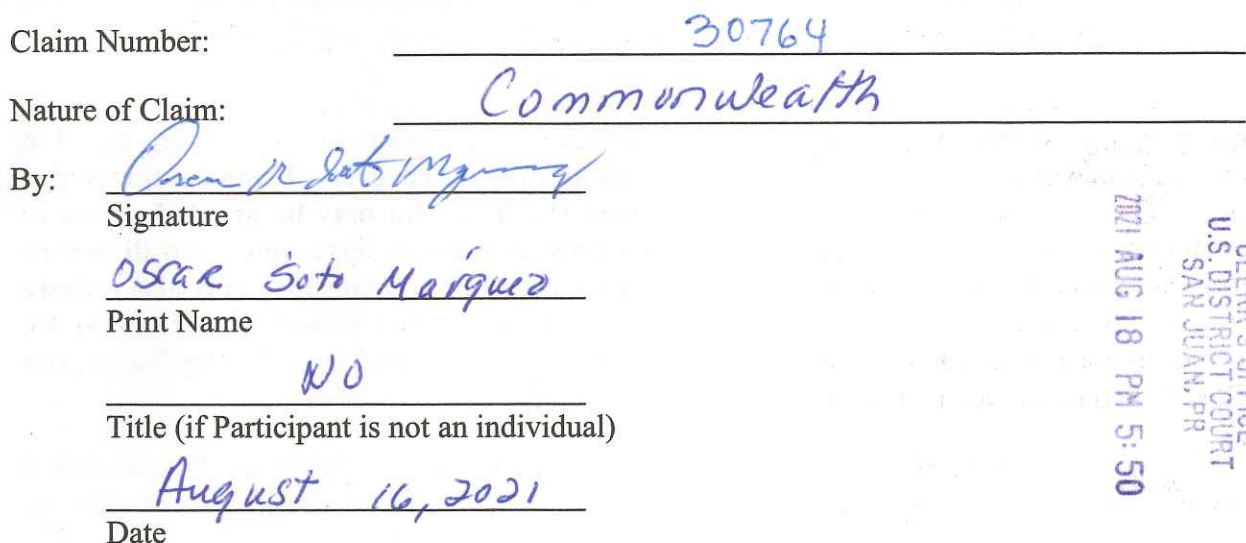 Claim Number: 30764
Nature of Claim: Commonwealth
By:
Signature
OSCAR Soto Márquez
Print Name
NO
Title (if Participant is not an individual)
August 16, 2021
Date
CLERK'S OFFICE
U.S. DISTRICT COURT
SAN JUAN, PR
2021 AUG 18 PM 5:50